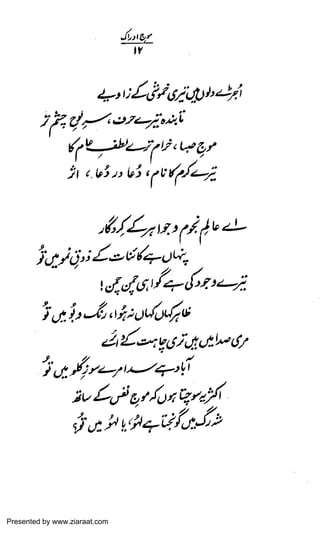 موجِ ادراک
۱۲
اُجڑے دلوں میں تیری خموشی کے زاویے
تابندہ تیرے حرف، سرِ لوحِ چشمِ تر
موجِ صبا، خرام ترے لطفِ عام کا
تیرے کرم کا نام، دُعا در دُعا، اثر
اے عالمِ نجوم و جواہر کے کردگار
پنہاں ہے کائنات کے ذوقِ نمو میں تُو
تیرے وجود کی ہے گواہی چمن چمن!
ظاہر کہاں کہاں نہ ہوا، رنگ و بُو میں تُو
مری صدا میں ہیں تری چاہت کے دائرے
آباد ہے سدا مرے سوزِ گلو میں تُو
اکثر یہ سوچتا ہوں کہ موجِ نفس کے ساتھ
شہ رگ میں گونجتا ہے لہُو، یا لہُو میں تُو؟
Presented by www.ziaraat.com